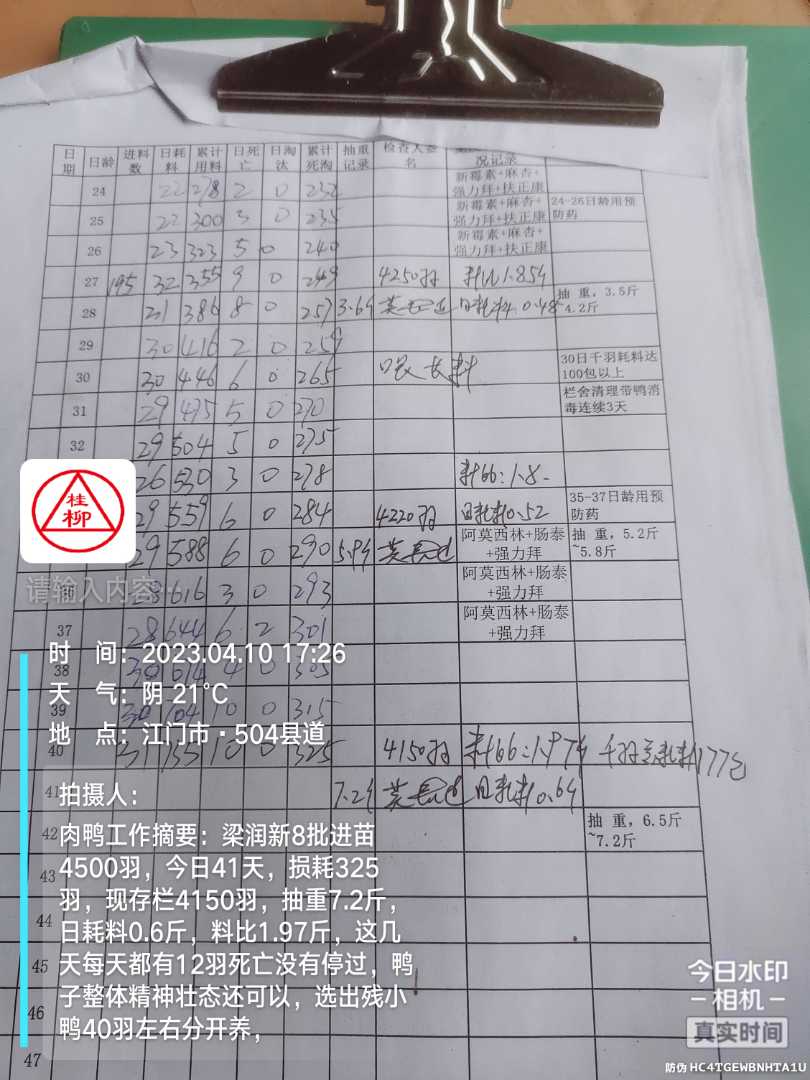 日期 日龄 进料数 日耗料 累计用料 日死亡 日淘汰 累计死淘 抽重记录 检查人签名 况记录
24 22 278 2 0 232 新霉素+麻杏+强力拜+扶正康
25 22 300 3 0 235 新霉素+麻杏+强力拜+扶正康 24-26日龄用预防药
26 23 323 5 0 240 新霉素+麻杏+强力拜+扶正康
27 195 32 355 9 0 249 4250羽 料比1.85斤
28 31 386 8 0 257 3.6斤 日耗料0.48 抽重，3.5斤~4.2斤
29 30 416 2 0 259
30 30 446 6 0 265 30日千羽耗料达100包以上
31 29 475 5 0 270 栏舍清理带鸭消毒连续3天
32 29 504 5 0 275
26 530 3 0 278 料66:1.8
29 559 6 0 284 4220羽 日耗料0.52 35-37日龄用预防药
29 588 6 0 290 5.9斤 阿莫西林+肠泰+强力拜 抽重，5.2斤~5.8斤
28 616 3 0 293 阿莫西林+肠泰+强力拜
37 28 644 6 2 301 阿莫西林+肠泰+强力拜
38 4 0 305
39 30 704 10 0 315
40 31 735 10 0 325 4150羽 料66:1.97斤 千羽 耗料177包
41 7.2斤 日耗料0.6斤
42 抽重，6.5斤~7.2斤
43
44
45
46
47
桂柳
请输入内容
时 间：2023.04.10 17:26
天 气：阴 21℃
地 点：江门市·504县道
拍摄人：
肉鸭工作摘要：梁润新8批进苗
4500羽，今日41天，损耗325
羽，现存栏4150羽，抽重7.2斤，
日耗料0.6斤，料比1.97斤，这几
天每天都有12羽死亡没有停过，鸭
子整体精神壮态还可以，选出残小
鸭40羽左右分开养，
今日水印
相机
真实时间
防伪 HC4TGEWBNHTA1U